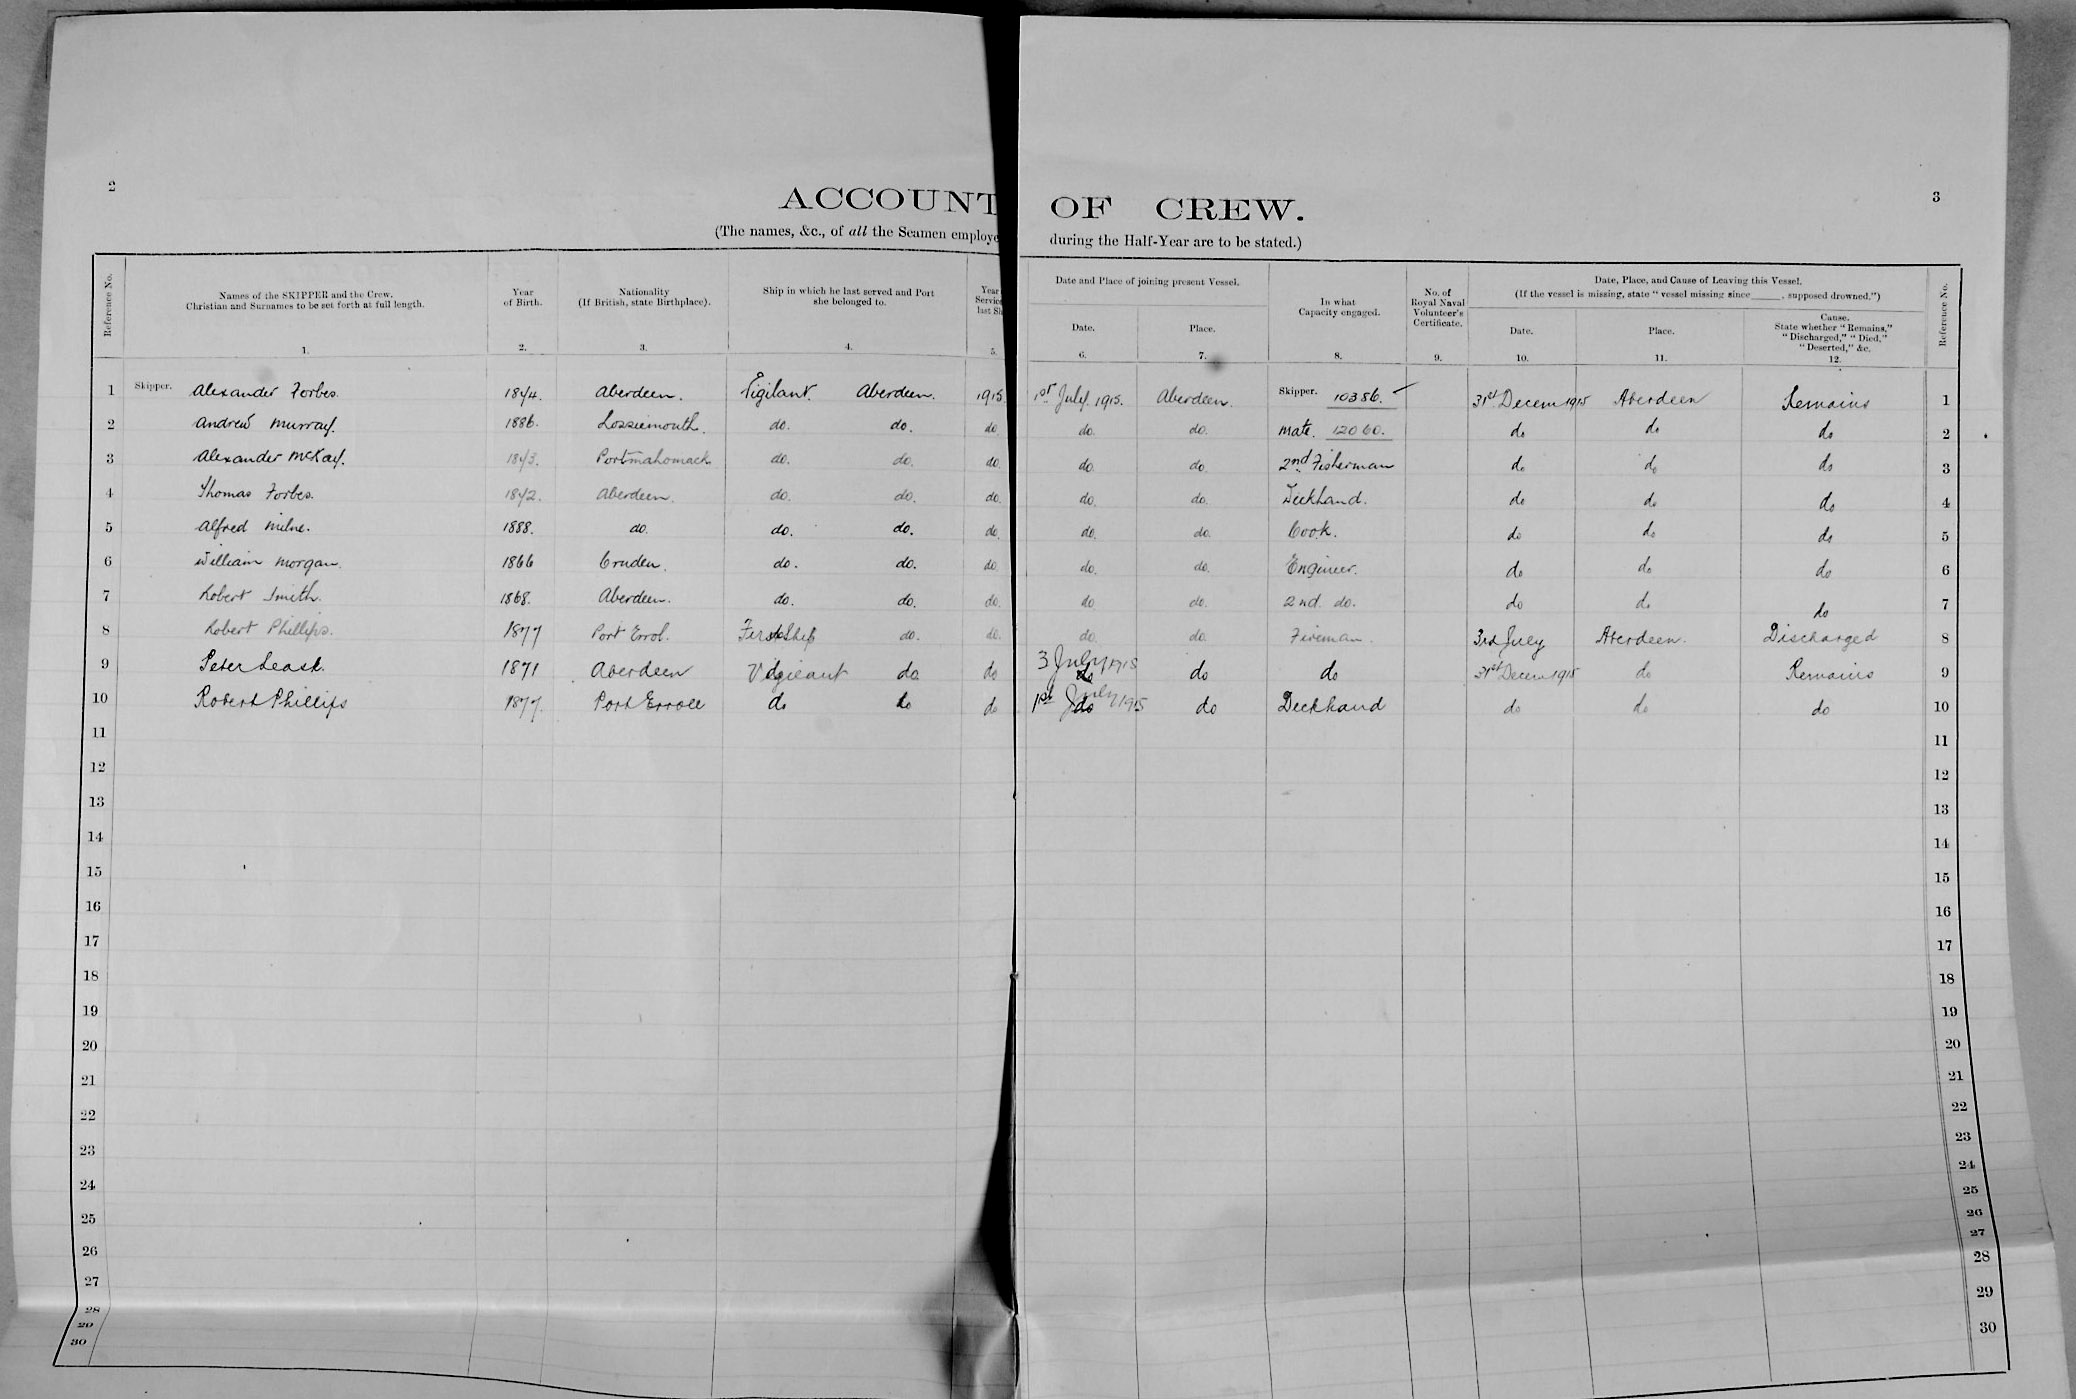 2
3
ACCOUNT OF CREW.
(The names, &c., of all the Seamen employe during the Half-Year are to be stated.)
Reference No.
Names of the SKIPPER and the Crew.
Christian and Surnames to be set forth at full length.
1.
Year
of Birth.
2.
Nationality
(If British, state Birthplace).
3.
Ship in which he last served and Port
she belonged to.
4.
Year
Service
last Sh
5.
Date and Place of joining present Vessel.
Date.
6.
Place.
7.
In what
Capacity engaged.
8.
No. of
Royal Naval
Volunteer's
Certificate.
9.
Date, Place, and Cause of Leaving this Vessel.
(If the vessel is missing, state "vessel missing since ____, supposed drowned.")
Date.
10.
Place.
11.
Cause.
State whether "Remains,"
"Discharged," "Died,"
"Deserted," &c.
12.
Reference No.
1 Skipper. Alexander Forbes. Vigilant. Aberdeen. 1915 1st July 1915. Aberdeen. Skipper. 10386. 31st Decem 1915 Aberdeen Remains 1
2 Andrew Murray. 1886. Lossiemouth. do. do. do. do. do. Mate. 12060. do do do 2
3 Alexander McKay. Portmahomack do. do. do. do. do. 2nd Fisherman do do do 3
4 Thomas Forbes. Aberdeen. do. do. do. do. do. Deckhand. do do do 4
5 Alfred Milne. 1888. do. do. do. do. do. do. Cook. do do do 5
6 William Morgan. 1866 Cruden. do. do. do. do. do. Engineer. do do do 6
7 Robert Smith. 1868. Aberdeen. do. do. do. do. do. 2nd. do. do do do 7
8 Robert Phillips. 1877 Port Errol. First Ship do. do. do. do. Fireman. 3rd July Aberdeen. Discharged 8
9 Peter Leask. 1871 Aberdeen Vigilant do do 3 July 1915 do do 31st Decem 1915 do Remains 9
10 Robert Phillips 1877. Port Erroll do do do 1st July 1915 do Deckhand do do do 10
11 11
12 12
13 13
14 14
15 15
16 16
17 17
18 18
19 19
20 20
21 21
22 22
23 23
24 24
25 25
26 26
27 27
28 28
29 29
30 30